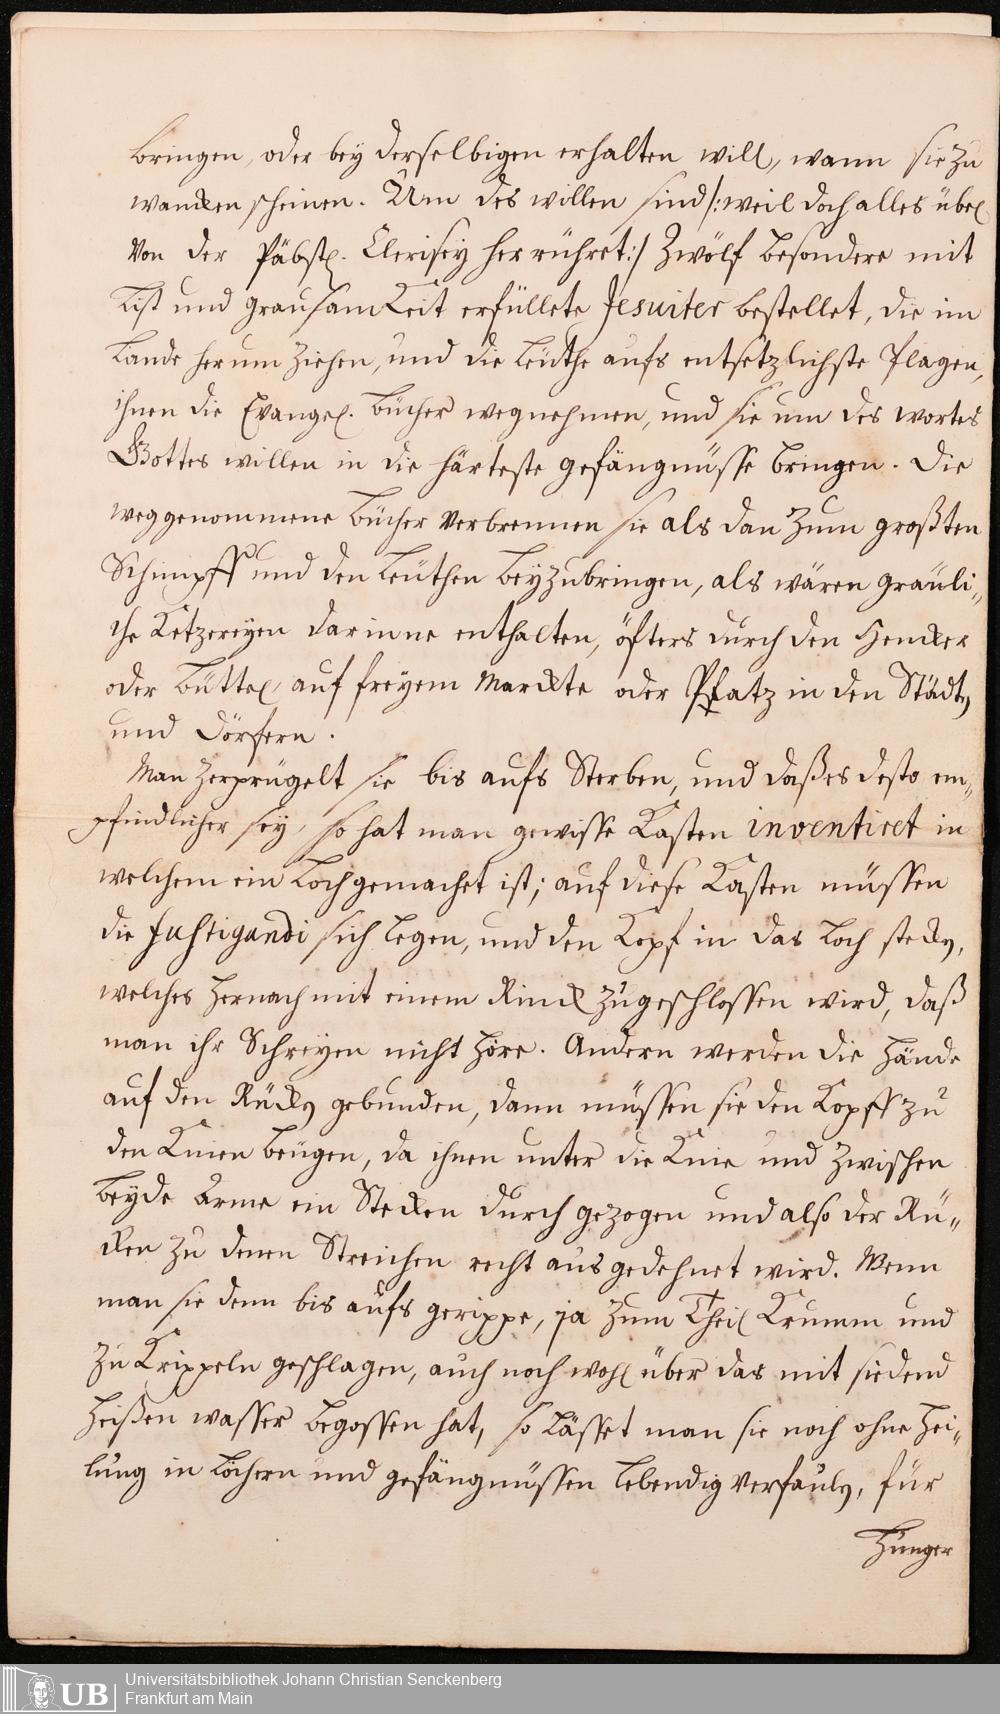 bringen, oder bey derselbigen erhalten will, wann sie zu
wancken scheinen. Um des willen sind /: weil doch alles übel
von der Päbstl. Clerisey herrühret :/ Zwölf besondere mit
List und grausamkeit erfüllete Jesuiter bestellet, die im
Lande herum ziehen, und die Leüthe aufs entsetzlichste Plagen,
ihnen die Evangel. Bücher wegnehmen, und sie um des wortes
Gottes willen in die härteste gefängnüsse bringen. Die
weggenommene Bücher verbrennen sie als dan zum großten
Schimpff und den Leüthen beyzubringen, als wären gräuli„
che Ketzereyen darinne enthalten, öfters durch den Hencker
oder Büttel, auf freyem Marckte oder Platz in den Städten
und Dörfern.
Man zerprügelt sie bis aufs Sterben, und daß es desto em„
pfindlicher sey, so hat man gewisse Kasten inventiret in
welchem ein Loch gemachet ist; auf diese Kasten müssen
die fustigandi sich legen, und den Kopf in das Loch stecken,
welches hernach mit einem Rinck zugeschlossen wird, daß
man ihr Schreyen nicht höre. Andern werden die Hände
auf den Rücken gebunden, dann müssen sie den Kopff zu
den Knien beügen, da ihnen unter die Knie und zwischen
beyde Arme ein Stecken durchgezogen und also der Rü„
cken zu denen Streichen recht ausgedehnet wird. Wenn
man sie denn bis aufs gerippe, ja zum Theil Krumm und
zu Krippeln geschlagen, auch noch wohl über das mit siedend
heißen wasser begossen hat, so lässet man sie noch ohne Hei„
lung in Löchern und gefängnüssen lebendig verfaulen, für
Hunger
UB
Universitätsbibliothek Johann Christian Senckenberg
Frankfurt am Main